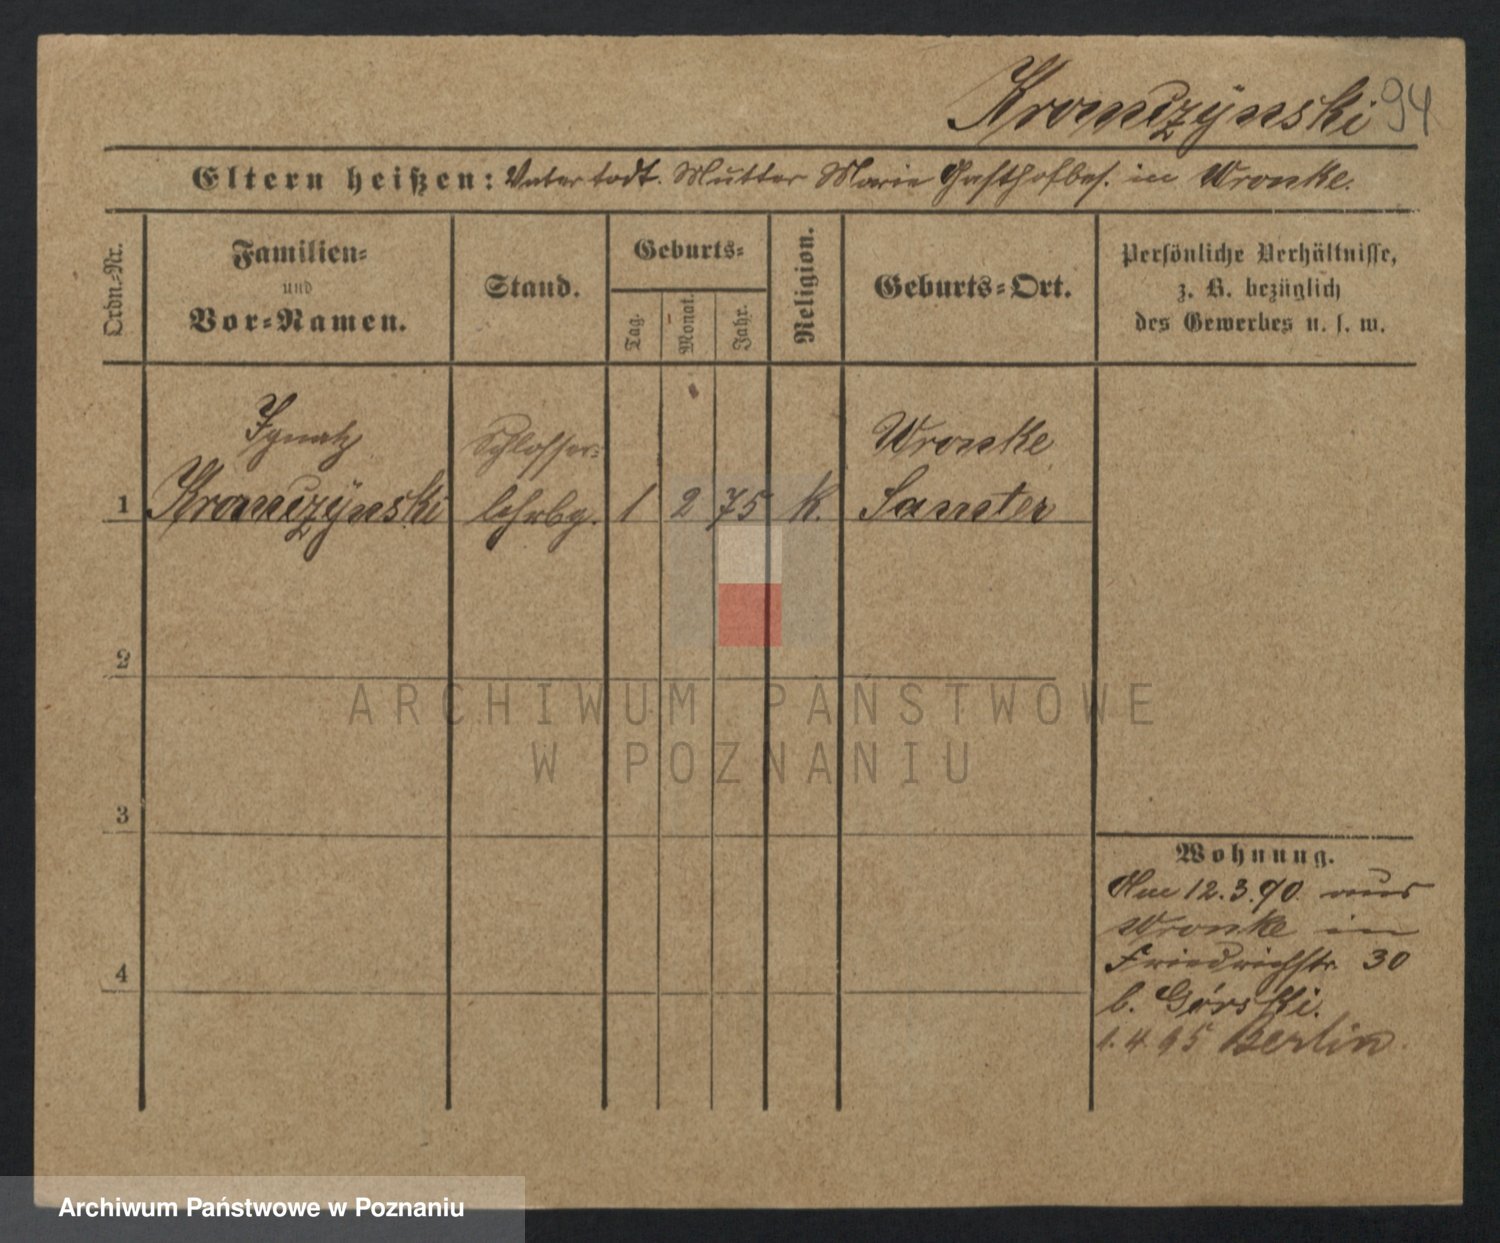 Kromczÿnski 94
Eltern heißen: Vater todt. Mutter Marie Gasthofbes. in Wronke.
Ordn.-Nr.
Familien-
und
Vor-Namen.
Stand.
Geburts-
Tag.
Monat.
Jahr.
Religion.
Geburts-Ort.
Persönliche Verhältnisse,
z. B. bezüglich
des Gewerbes u. s. w.
Ignatz Schlosser- Wronke
1 Kromczÿnski lehrbg. 1 2 75 k. Samter
2
3
4
Wohnung.
Am 12.3.90. aus
Wronke in
Friedrichstr. 30
b. Górski.
1.4 95 Berlin.
ARCHIWUM PAŃSTWOWE
W POZNANIU
Archiwum Państwowe w Poznaniu